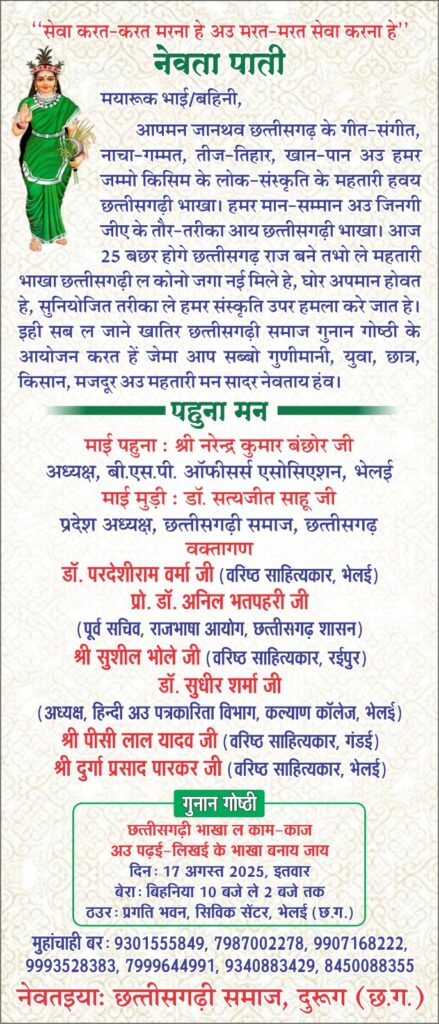 ‘‘सेवा करत-करत मरना हे अउ मरत-मरत सेवा करना हे’’
नेवता पाती
मयारूक भाई/बहिनी,
आपमन जानथव छत्तीसगढ़ के गीत-संगीत,
नाचा-गम्मत, तीज-तिहार, खान-पान अउ हमर
जम्मो किसिम के लोक-संस्कृति के महतारी हवय
छत्तीसगढ़ी भाखा। हमर मान-सम्मान अउ जिनगी
जीए के तौर-तरीका आय छत्तीसगढ़ी भाखा। आज
25 बछर होगे छत्तीसगढ़ राज बने तभो ले महतारी
भाखा छत्तीसगढ़ी ल कोनो जगा नई मिले हे, घोर अपमान होवत
हे, सुनियोजित तरीका ले हमर संस्कृति उपर हमला करे जात हे।
इही सब ल जाने खातिर छत्तीसगढ़ी समाज गुनान गोष्ठी के
आयोजन करत हें जेमा आप सब्बो गुणीमानी, युवा, छात्र,
किसान, मजदूर अउ महतारी मन सादर नेवताय हंव।
पहुना मन
माई पहुना : श्री नरेन्द्र कुमार बंछोर जी
अध्यक्ष, बी.एस.पी. ऑफीसर्स एसोसिएशन, भेलई
माई मुड़ी : डॉ. सत्यजीत साहू जी
प्रदेश अध्यक्ष, छत्तीसगढ़ी समाज, छत्तीसगढ़
वक्तागण
डॉ. परदेशीराम वर्मा जी (वरिष्ठ साहित्यकार, भेलई)
प्रो. डॉ. अनिल भतपहरी जी
(पूर्व सचिव, राजभाषा आयोग, छत्तीसगढ़ शासन)
श्री सुशील भोले जी (वरिष्ठ साहित्यकार, रईपुर)
डॉ. सुधीर शर्मा जी
(अध्यक्ष, हिन्दी अउ पत्रकारिता विभाग, कल्याण कॉलेज, भेलई)
श्री पीसी लाल यादव जी (वरिष्ठ साहित्यकार, गंडई)
श्री दुर्गा प्रसाद पारकर जी (वरिष्ठ साहित्यकार, भेलई)
गुनान गोष्ठी
छत्तीसगढ़ी भाखा ल काम-काज
अउ पढ़ई-लिखई के भाखा बनाय जाय
दिन: 17 अगस्त 2025, इतवार
बेरा: बिहनिया 10 बजे ले 2 बजे तक
ठउर: प्रगति भवन, सिविक सेंटर, भेलई (छ.ग.)
मुहांचाही बर: 9301555849, 7987002278, 9907168222,
9993528383, 7999644991, 9340883429, 8450088355
नेवतइया: छत्तीसगढ़ी समाज, दुरूग (छ.ग.)